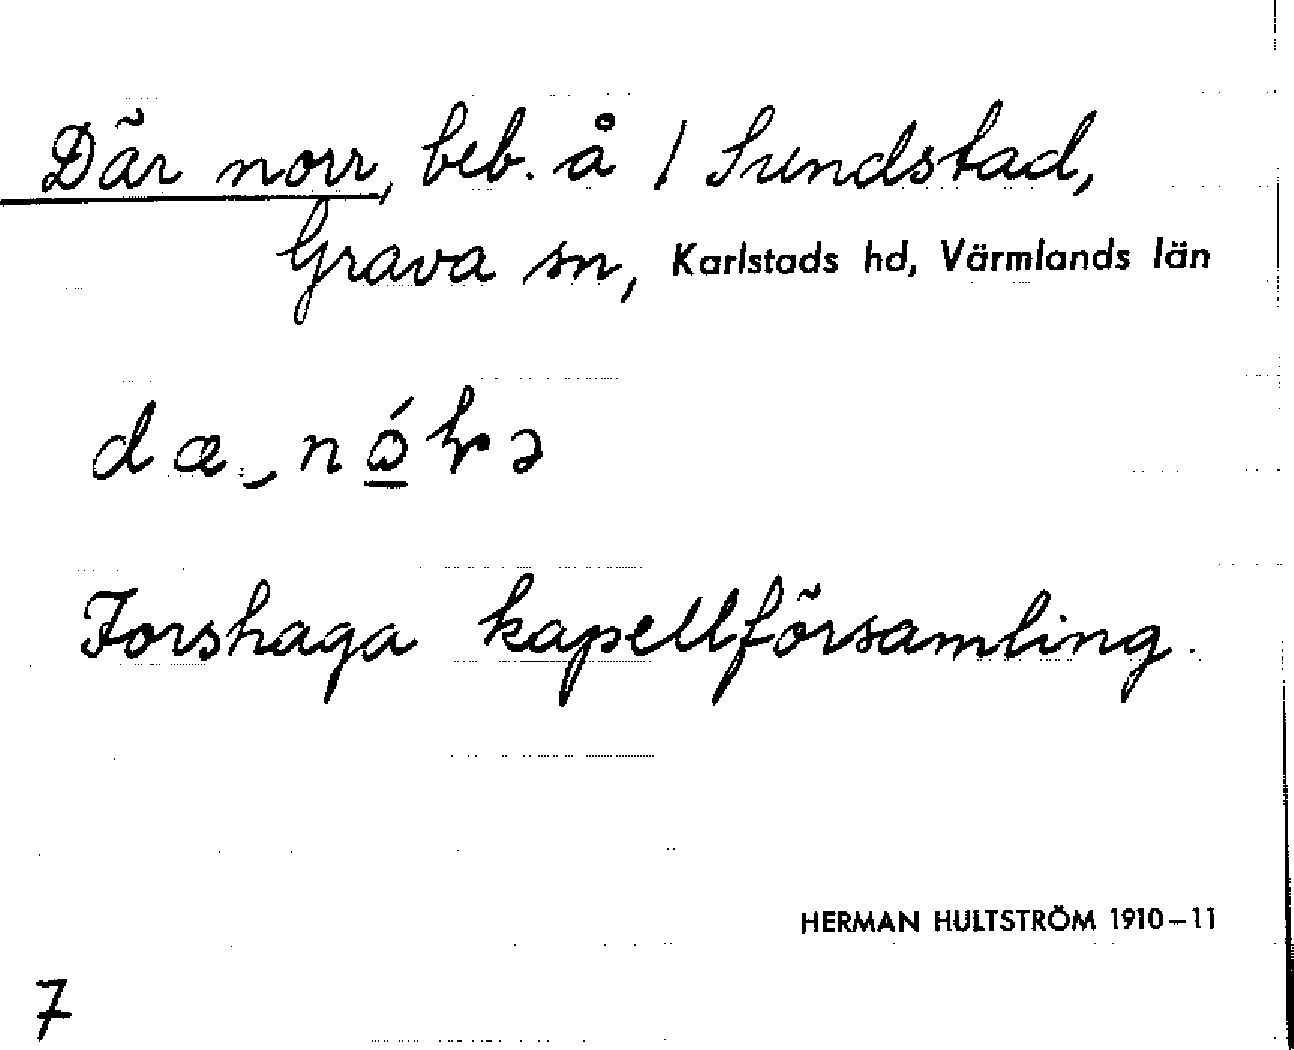 Där norr, beb. å 1 Sundstad,
Grava sn, Karlstads hd, Värmlands län
Forshaga kapellförsamling.
HERMAN HULTSTRÖM 1910–11
7